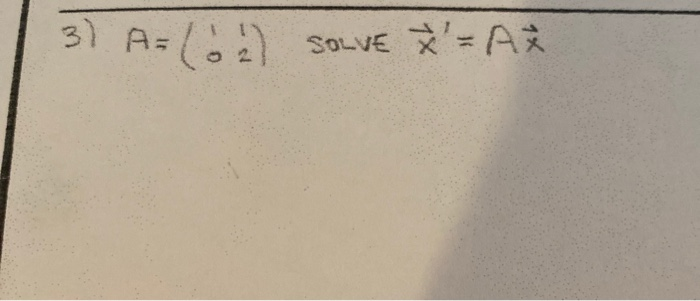 3) A = ( 1 1 0 2 ) SOLVE x⃗' = Ax⃗